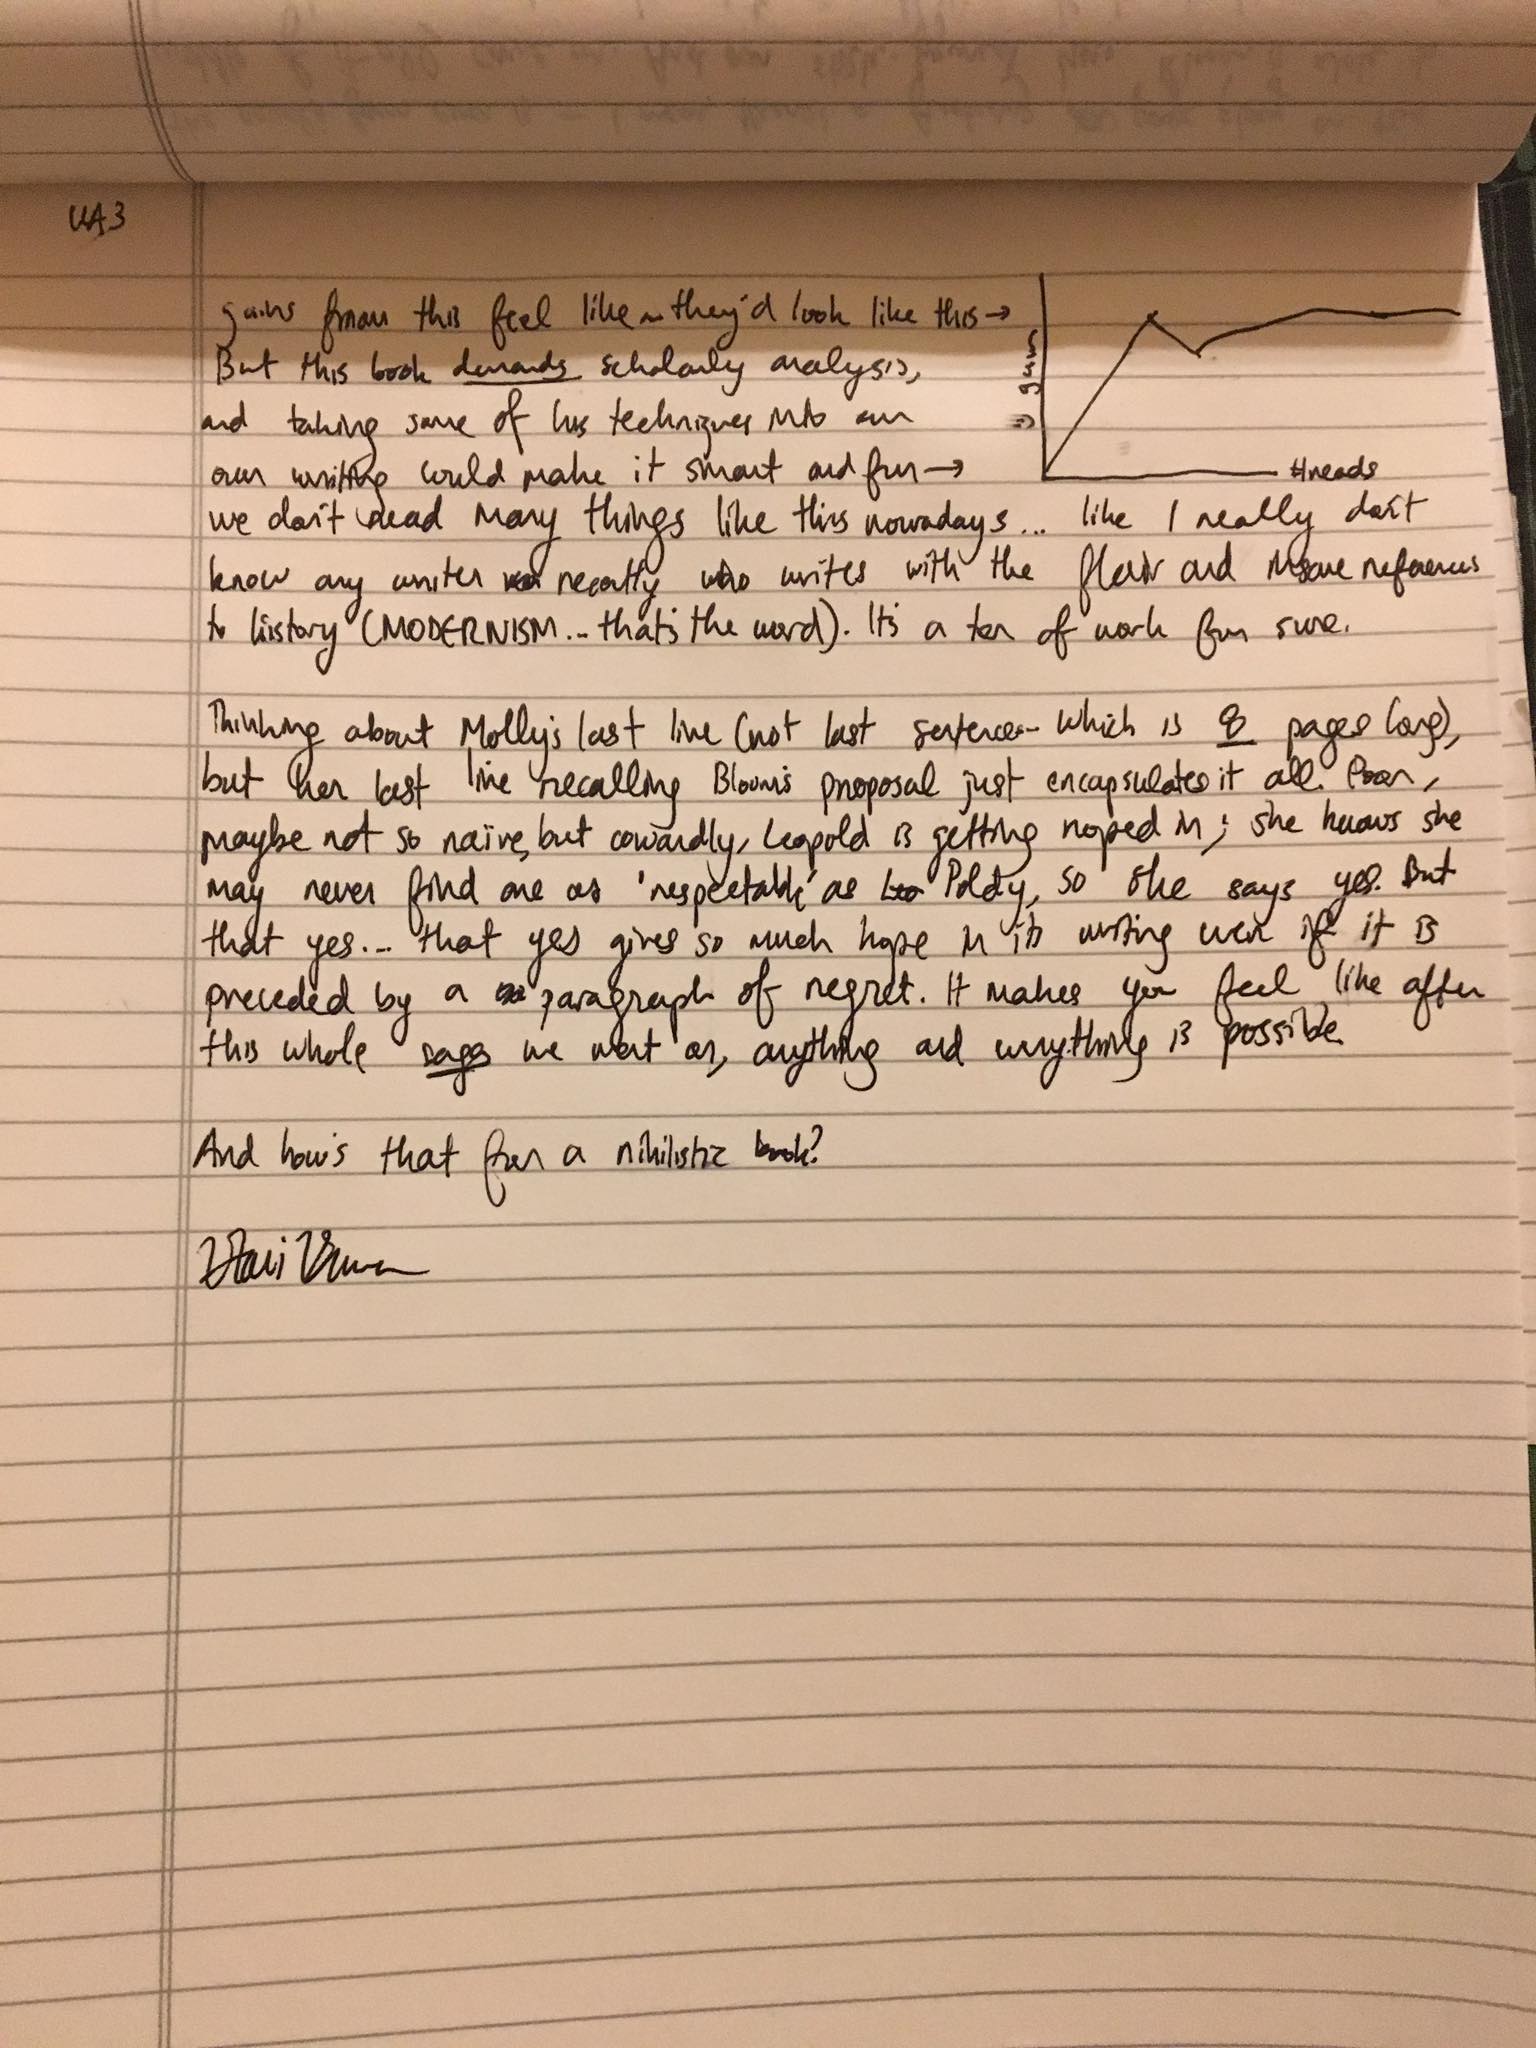 UA3
gains from this feel like ~ they'd look like this →
But this book demands scholarly analysis,
and taking some of his techniques into our
own writing could make it smart and fun →
# reads
we don't read many things like this nowadays... like I really don't
know any writer recently who writes with the flair and insane references
to history (MODERNISM... that's the word). It's a ton of work for sure.
Thinking about Molly's last line (not last sentence - which is 8 pages long),
but her last line recalling Bloom's proposal just encapsulates it all. Poor,
maybe not so naïve, but cowardly, Leopold is getting roped in; she knows she
may never find one as 'respectable' as Poldy, so she says yes. But
that yes... that yes gives so much hope in its writing even if it is
preceded by a paragraph of regret. It makes you feel like after
this whole saga we went on, anything and everything is possible.
And how's that for a nihilistic book?